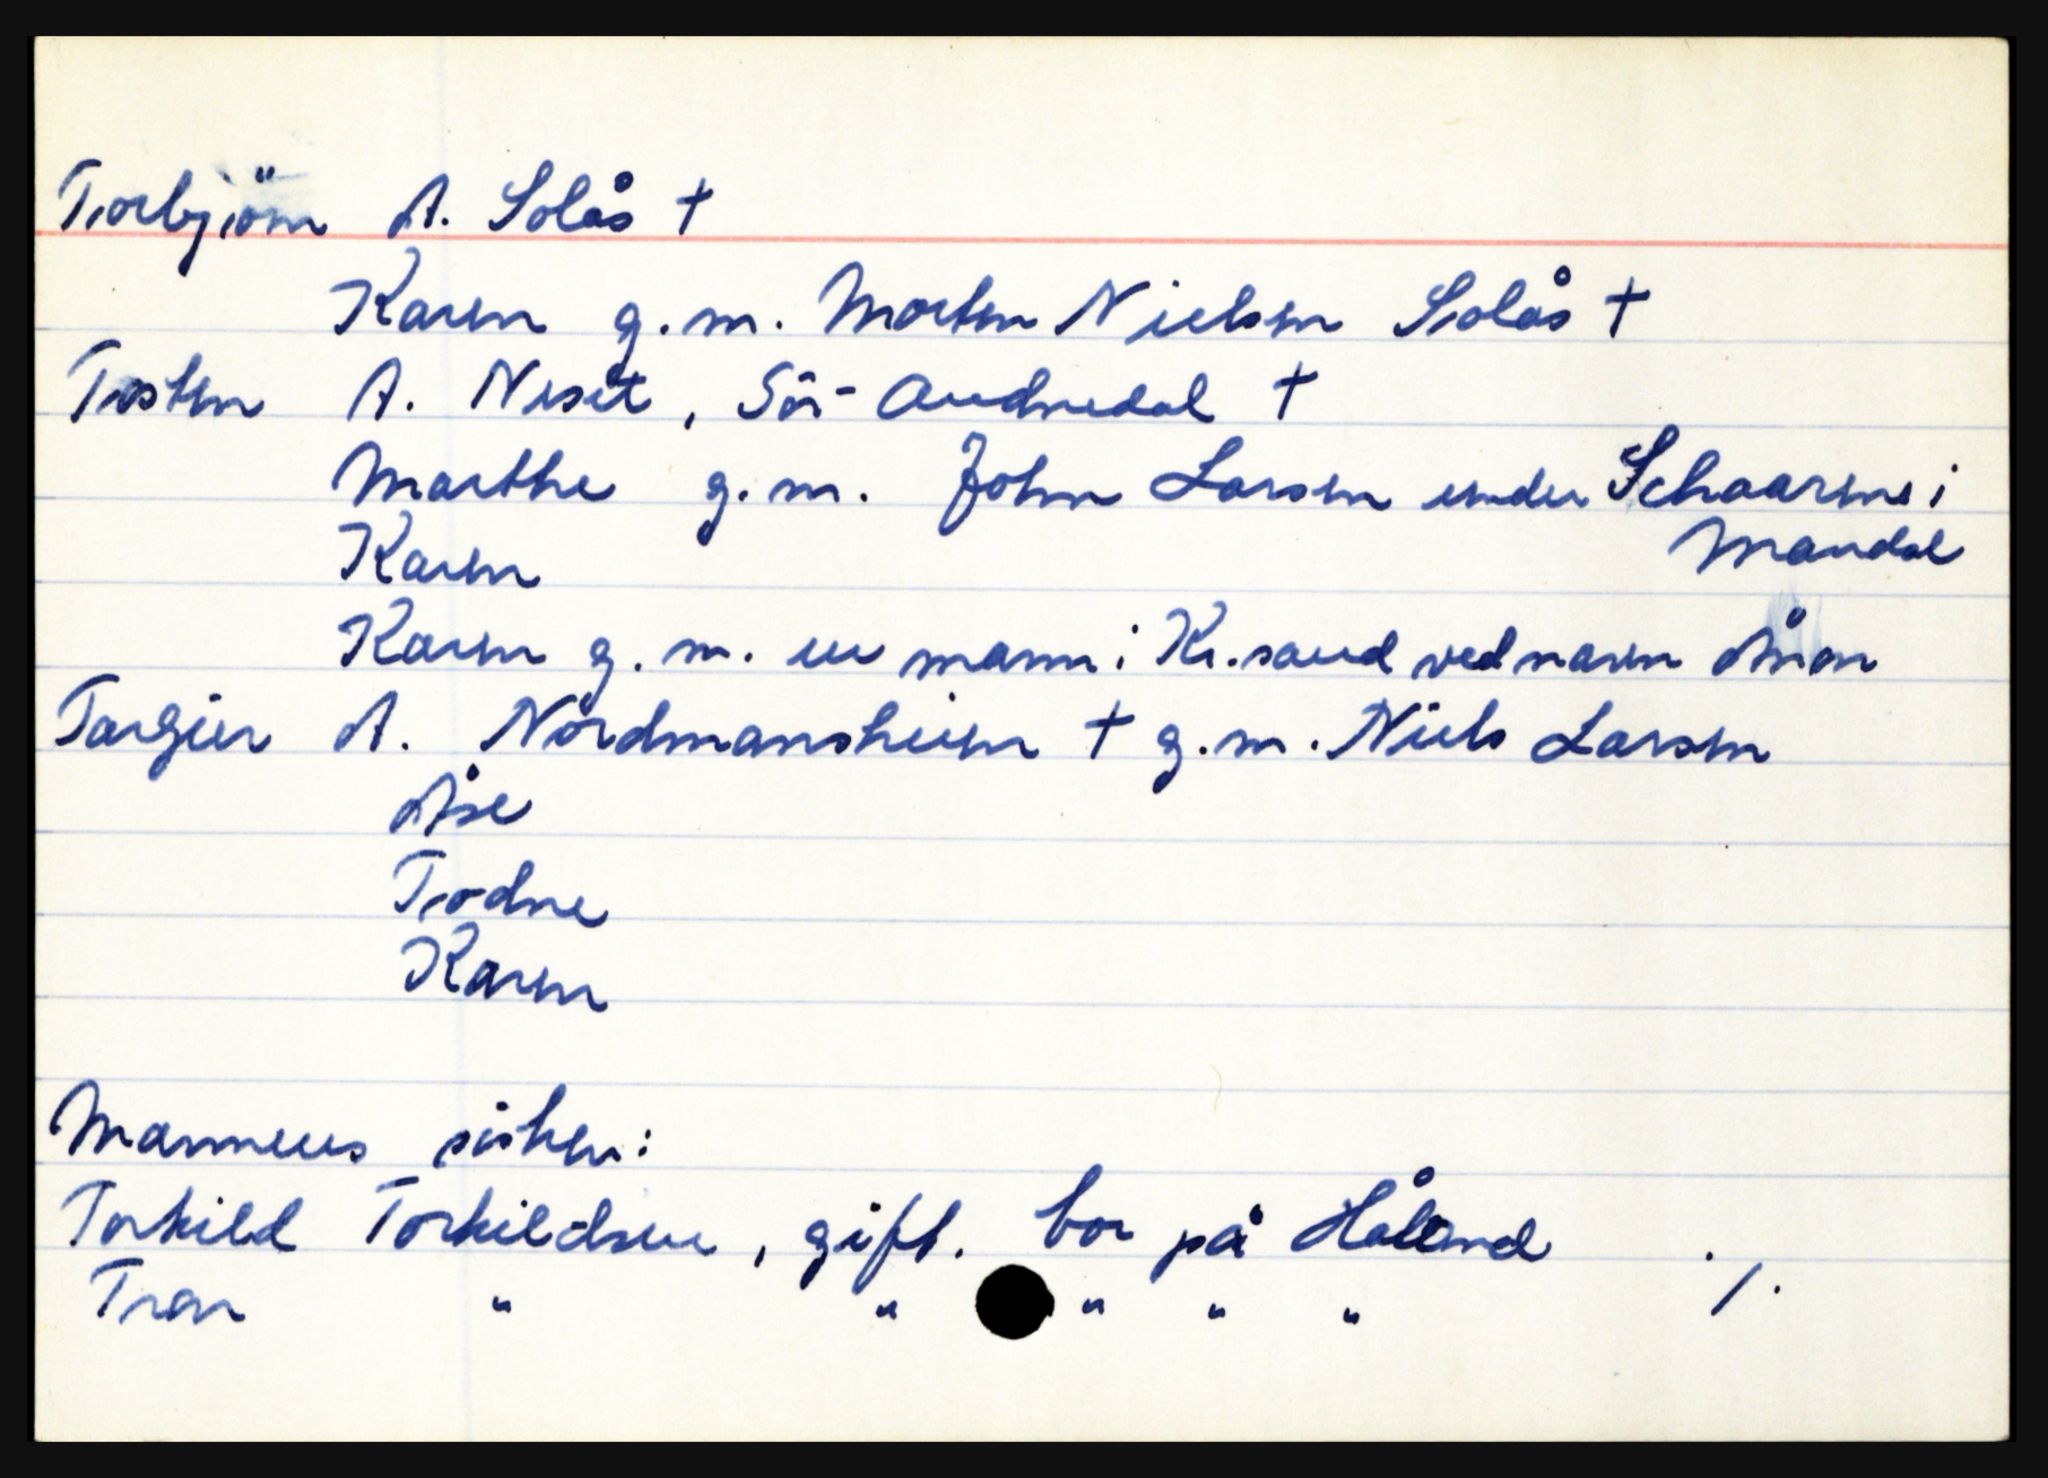 Torbjörn A. Solås †
Karen g.m. Morten Nielsen Solås †
Tosten A. Neset, Sör-Audnedal †
Marthe g.m. John Larsen under Schaarene i
Mandal
Karen
Karen g.m. en mann i Kr.sand ved navn
Targier A. Nordmansheien † g.m. Niels Larsen
Åse
Todne
Karen
Mannens sösken:
Torkild Torkildsen, gift. bor på Håland
Tron " " " " " ./.